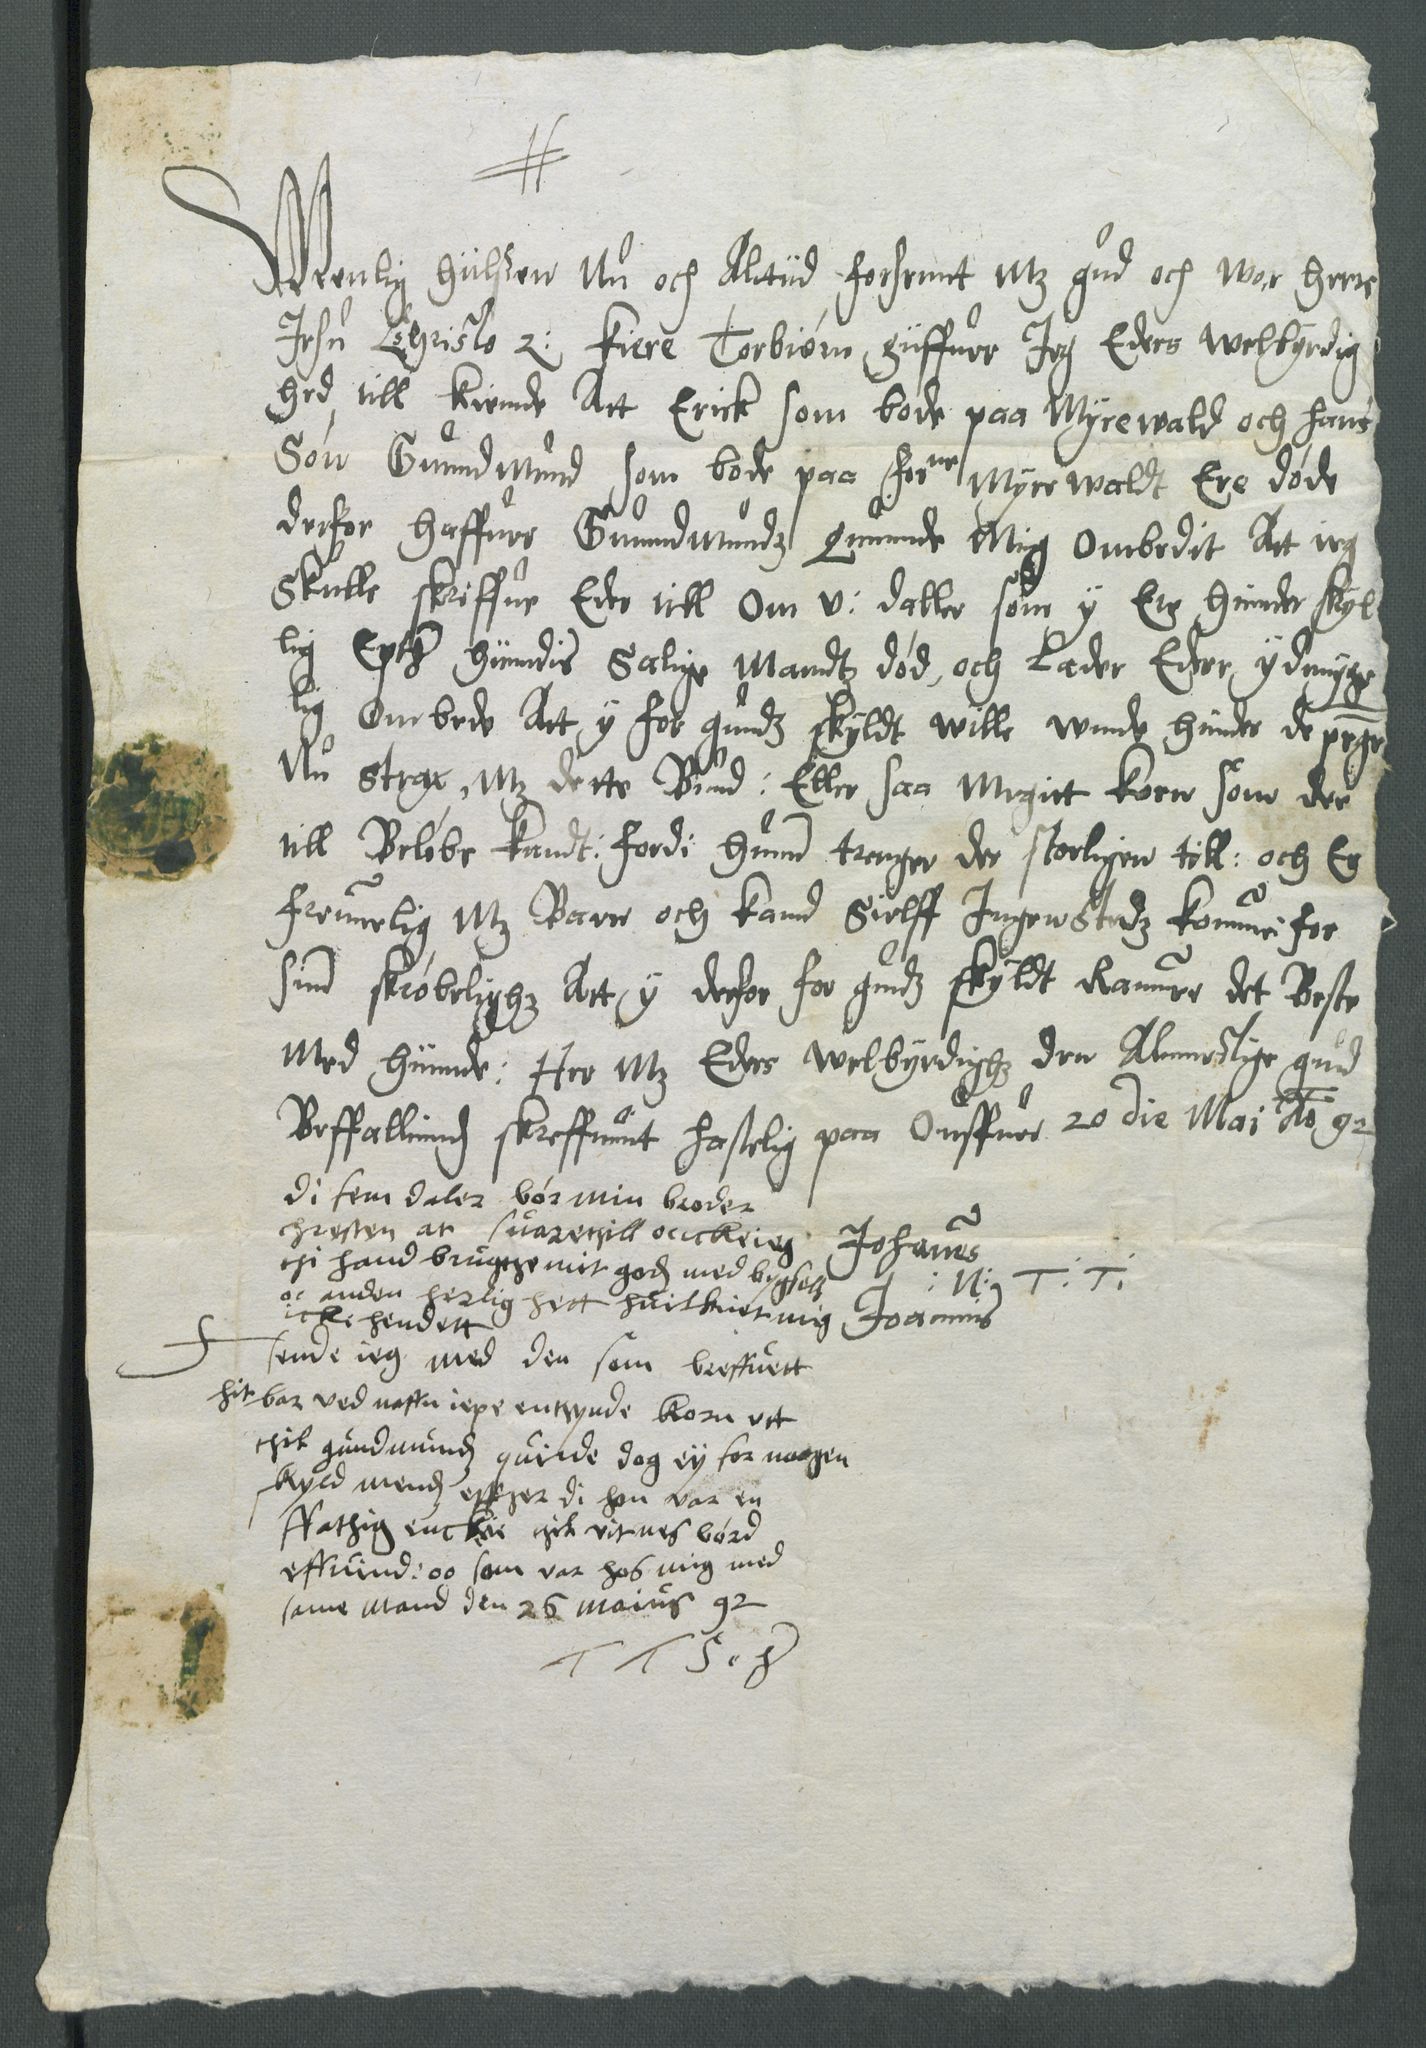 Wenlig hüilssen Nu och Altiid forsentt Mz gud och wor herre
Jesu Christo 2: Kiere Torbiörn giiffuer Jeg Eders welbÿrdig
hed till kiende Att Erick som bode paa Mÿrewald och hans
Sön Gunndmund som bode paa forne Mÿrewaldt Ere döde
derfor haffuer Gunndmundz Quinde Mig Ombedit Att ieg
Skulle skriffue Eder till Om v: daller som ÿ Ere hinder skÿl
lig Epther hindis Salige Mandtz död, och Lader Eder ÿdmÿge
lig Ombede Att ÿ for gudz skÿldt wille unde hinder de penge
Nu strax, Mz dette Bud: Eller saa Megitt korn som der
till Belöbe kandt: fordi hunn trenger der storligen till: och Er
fremelig Mz Barn och kand Sielff Ingensteds komme for
sinn skröbelighz Att ÿ derfor for gudz skÿldt Ramme det Beste
Med hinde: Her Mz Eders welbÿrdighz den Almectige gud
Beffallinndz skreffuint hastelig paa Onssöer 20 die Maj Ao 92
Johannes
: N: T: T:
Joannis
di fem daler bör min broder
chresten at suarethill occkeieg
thi hand brugthe mit gods med bygsell
oc anden herlig hett huilkiet mig
icke hendett
sende ieg med den som breffuett
hit bar ved naffn iepe en thynde korn vtt
thil gundmunds quinde dog eÿ for nogen
skyld mends effther di hon var en
ffathig enckie thil vitnes börd
effuind: oo som var hos mig med
same mand den 26 maius 92
T T S. h